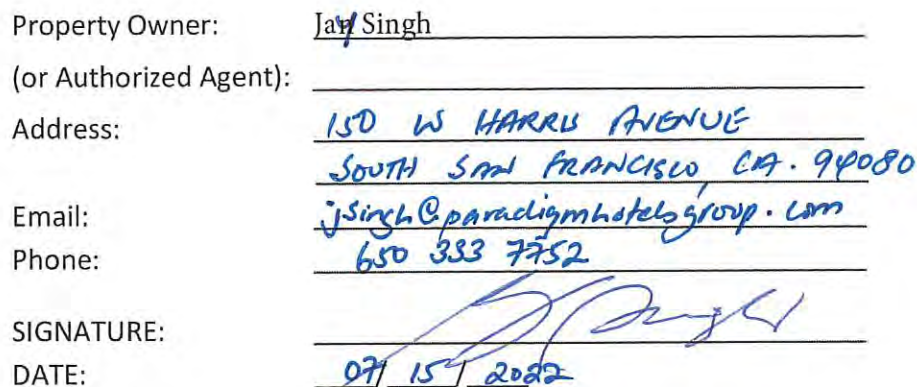 Property Owner: Jay Singh
(or Authorized Agent):
Address: 150 W HARRIS AVENUE
SOUTH SAN FRANCISCO, CA. 94080
Email: jsingh@paradigmhotelsgroup.com
Phone: 650 333 7752
SIGNATURE: Singh
DATE: 07/ 15 / 2022